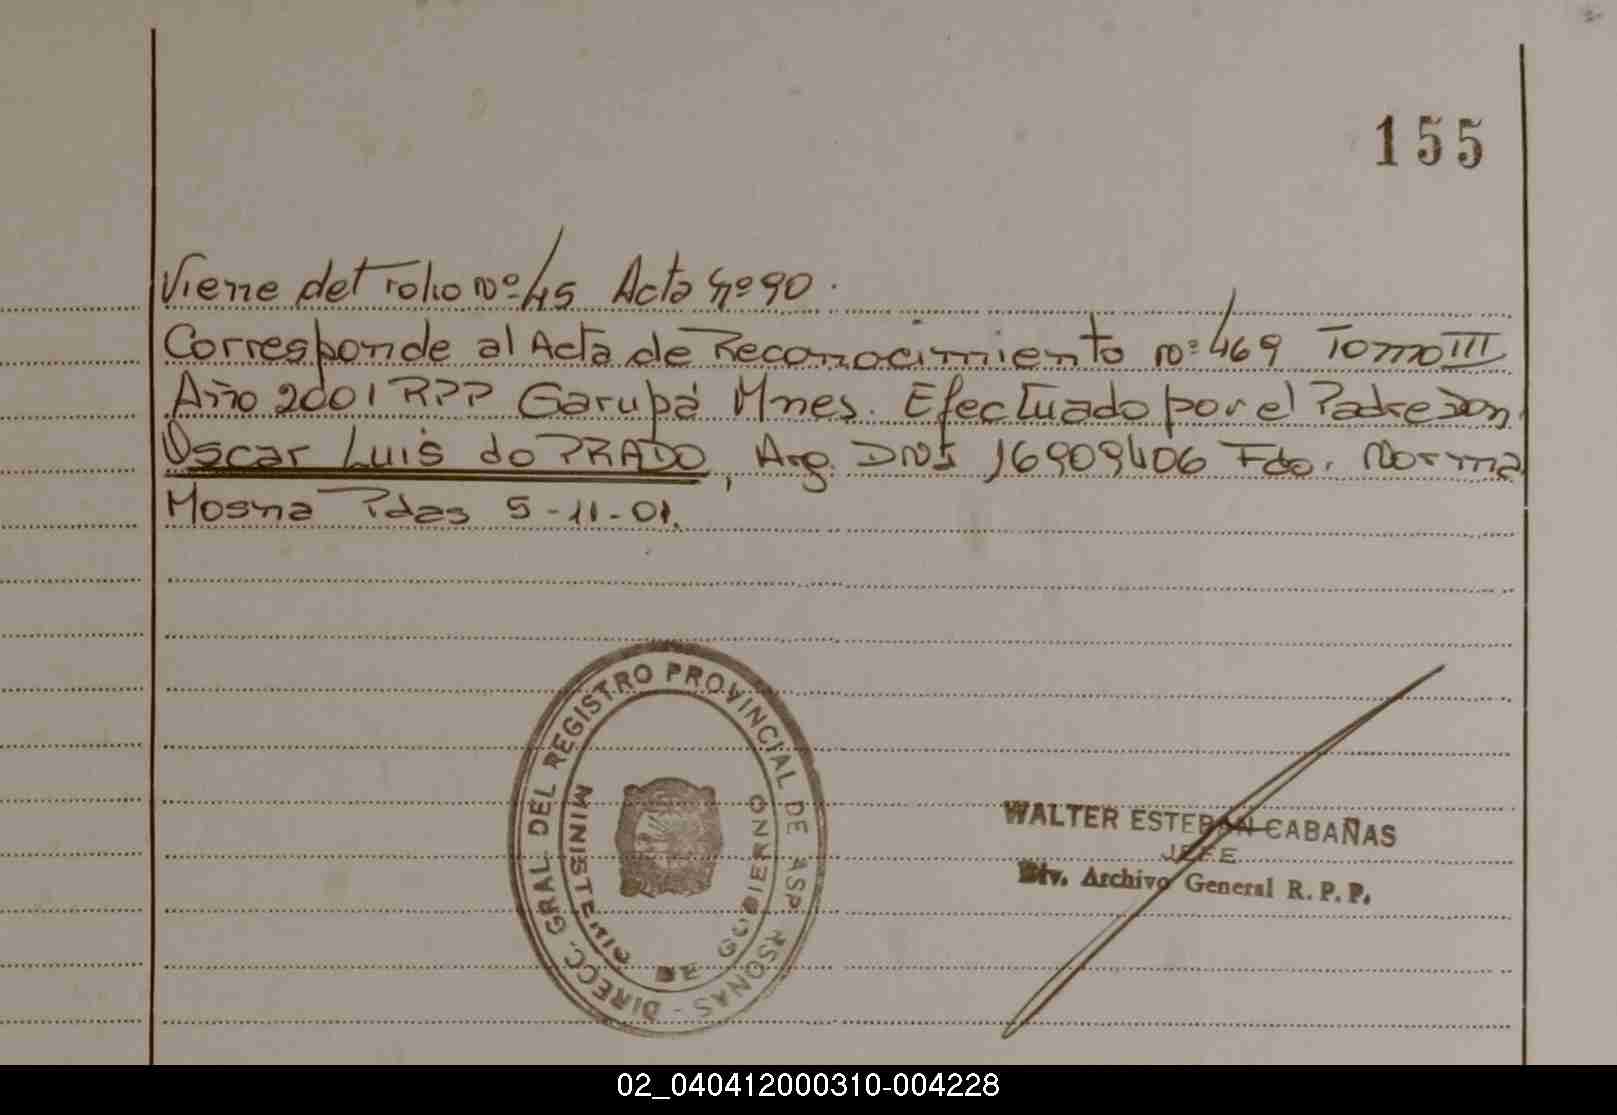 155
Viene del Folio Nº 45 Acta Nº 90.
Corresponde al Acta de Reconocimiento Nº 469 Tomo III
Año 2001 RPP Garupá Mnes. Efectuado por el Padre Don
Oscar Luis do PRADO, Arg. DNI 16909406 Fdo. Norma
Mosna Pdas 5-11-01.
DIRECC. GRAL. DEL REGISTRO PROVINCIAL DE
MINISTERIO DE GOBIERNO
WALTER ESTEBAN CABAÑAS
JEFE
Div. Archivo General R. P. P.
02_040412000310-004228